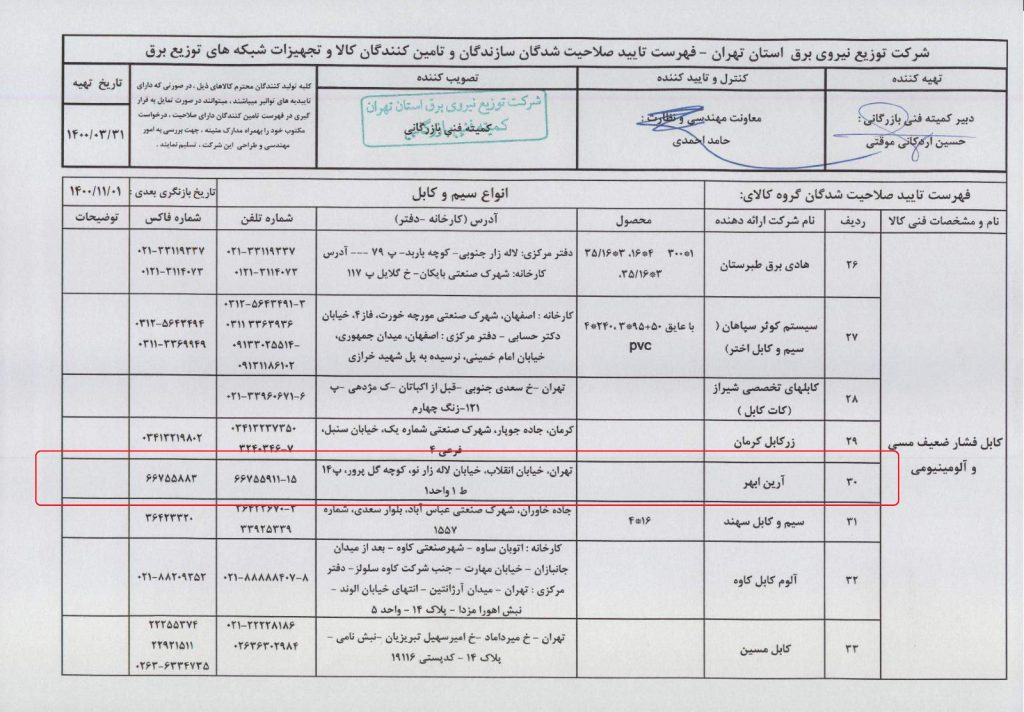 شرکت توزیع نیروی برق استان تهران - فهرست تایید صلاحیت شدگان سازندگان و تامین کنندگان کالا و تجهیزات شبکه های توزیع برق
تهیه کننده
کنترل و تایید کننده
تصویب کننده
کلیه تولید کنندگان محترم کالاهای ذیل ، در صورتی که دارای
تاییدیه های توانیر میباشند، میتوانند در صورت تمایل به قرار
گیری در فهرست تامین کنندگان دارای صلاحیت ، درخواست
مکتوب خود را بهمراه مدارک مثبته ، جهت بررسی به امور
مهندسی و طراحی این شرکت ، تسلیم نمایند .
تاریخ تهیه
دبیر کمیته فنی بازرگانی :
حسین اردکانی موقتی
معاونت مهندسی و نظارت :
حامد احمدی
شرکت توزیع نیروی برق استان تهران
کمیته فنی بازرگانی
کمیته فنی بازرگانی
۱۴۰۰/۰۳/۳۱
فهرست تایید صلاحیت شدگان گروه کالای:
انواع سیم و کابل
تاریخ بازنگری بعدی :
۱۴۰۰/۱۱/۰۱
نام و مشخصات فنی کالا
ردیف
نام شرکت ارائه دهنده
محصول
آدرس (کارخانه -دفتر)
شماره تلفن
شماره فاکس
توضیحات
کابل فشار ضعیف مسی
و آلومینیومی
۲۶
هادی برق طبرستان
۱*۳۰۰ ۴*۱۶، ۳*۳۵/۱۶
۳*۳۵/۱۶،
دفتر مرکزی: لاله زار جنوبی- کوچه باربد- پ ۷۹ --- آدرس
کارخانه: شهرک صنعتی بایکان- خ گلایل پ ۱۱۷
۰۲۱-۳۳۱۱۹۳۳۷
۰۱۲۱-۳۱۱۴۰۷۳
۰۲۱-۳۳۱۱۹۳۳۷
۰۱۲۱-۳۱۱۴۰۷۳
۲۷
سیستم کوثر سپاهان (
سیم و کابل اختر)
۴*۲۴۰، ۳*۹۵+۵۰ با عایق
pvc
کارخانه : اصفهان، شهرک صنعتی مورچه خورت، فاز۴، خیابان
دکتر حسابی - دفتر مرکزی : اصفهان، میدان جمهوری،
خیابان امام خمینی، نرسیده به پل شهید خرازی
۰۳۱۲-۵۶۴۳۴۹۱-۳
۰۳۱۱ ۳۳۶۳۹۳۶
۰۹۱۳۳۰۲۵۵۱۴-
۰۹۱۳۱۱۸۶۱۰۲
۰۳۱۲-۵۶۴۳۴۹۴
۰۳۱۱-۳۳۶۹۹۴۹
۲۸
کابلهای تخصصی شیراز
(کات کابل )
تهران -خ سعدی جنوبی -قبل از اکباتان -ک مژدهی -پ
۱۲۱-زنگ چهارم
۰۲۱-۳۳۹۶۰۶۷۱-۶
۲۹
زرکابل کرمان
کرمان، جاده جوپار، شهرک صنعتی شماره یک، خیابان سنبل،
فرعی ۴
۰۳۴۱۳۲۳۷۳۵۰
۳۲۴۰۳۴۶-۷
۰۳۴۱۳۲۱۹۸۰۲
۳۰
آرین ابهر
تهران، خیابان انقلاب، خیابان لاله زار نو، کوچه گل پرور، پ۱۴
ط ۱ واحد۱
۶۶۷۵۵۹۱۱-۱۵
۶۶۷۵۵۸۸۳
۳۱
سیم و کابل سهند
۴*۱۶
جاده خاوران، شهرک صنعتی عباس آباد، بلوار سعدی، شماره
۱۵۵۷
۳۶۴۲۲۶۷۰-۲
۳۳۹۲۵۳۳۹
۳۶۴۲۳۳۲۰
۳۲
آلوم کابل کاوه
کارخانه : اتوبان ساوه - شهرصنعتی کاوه - بعد از میدان
جانبازان - خیابان مهارت - جنب شرکت کاوه سلولز - دفتر
مرکزی : تهران - میدان آرژانتین - انتهای خیابان الوند -
نبش اهورا مزدا - پلاک ۱۴ - واحد ۵
۰۲۱-۸۸۸۸۸۴۰۷-۸
۰۲۱-۸۸۲۰۹۳۵۲
۳۳
کابل مسین
تهران - خ میرداماد -خ امیرسهیل تبریزیان -نبش نامی -
پلاک ۱۴ - کدپستی ۱۹۱۱۶
۰۲۱-۲۲۲۲۸۱۸۶
۰۲۶۳۶۳۰۲۹۸۴
۲۲۲۵۵۳۷۴
۲۲۹۲۱۵۱۱
۰۲۶۳-۶۳۳۴۷۳۵